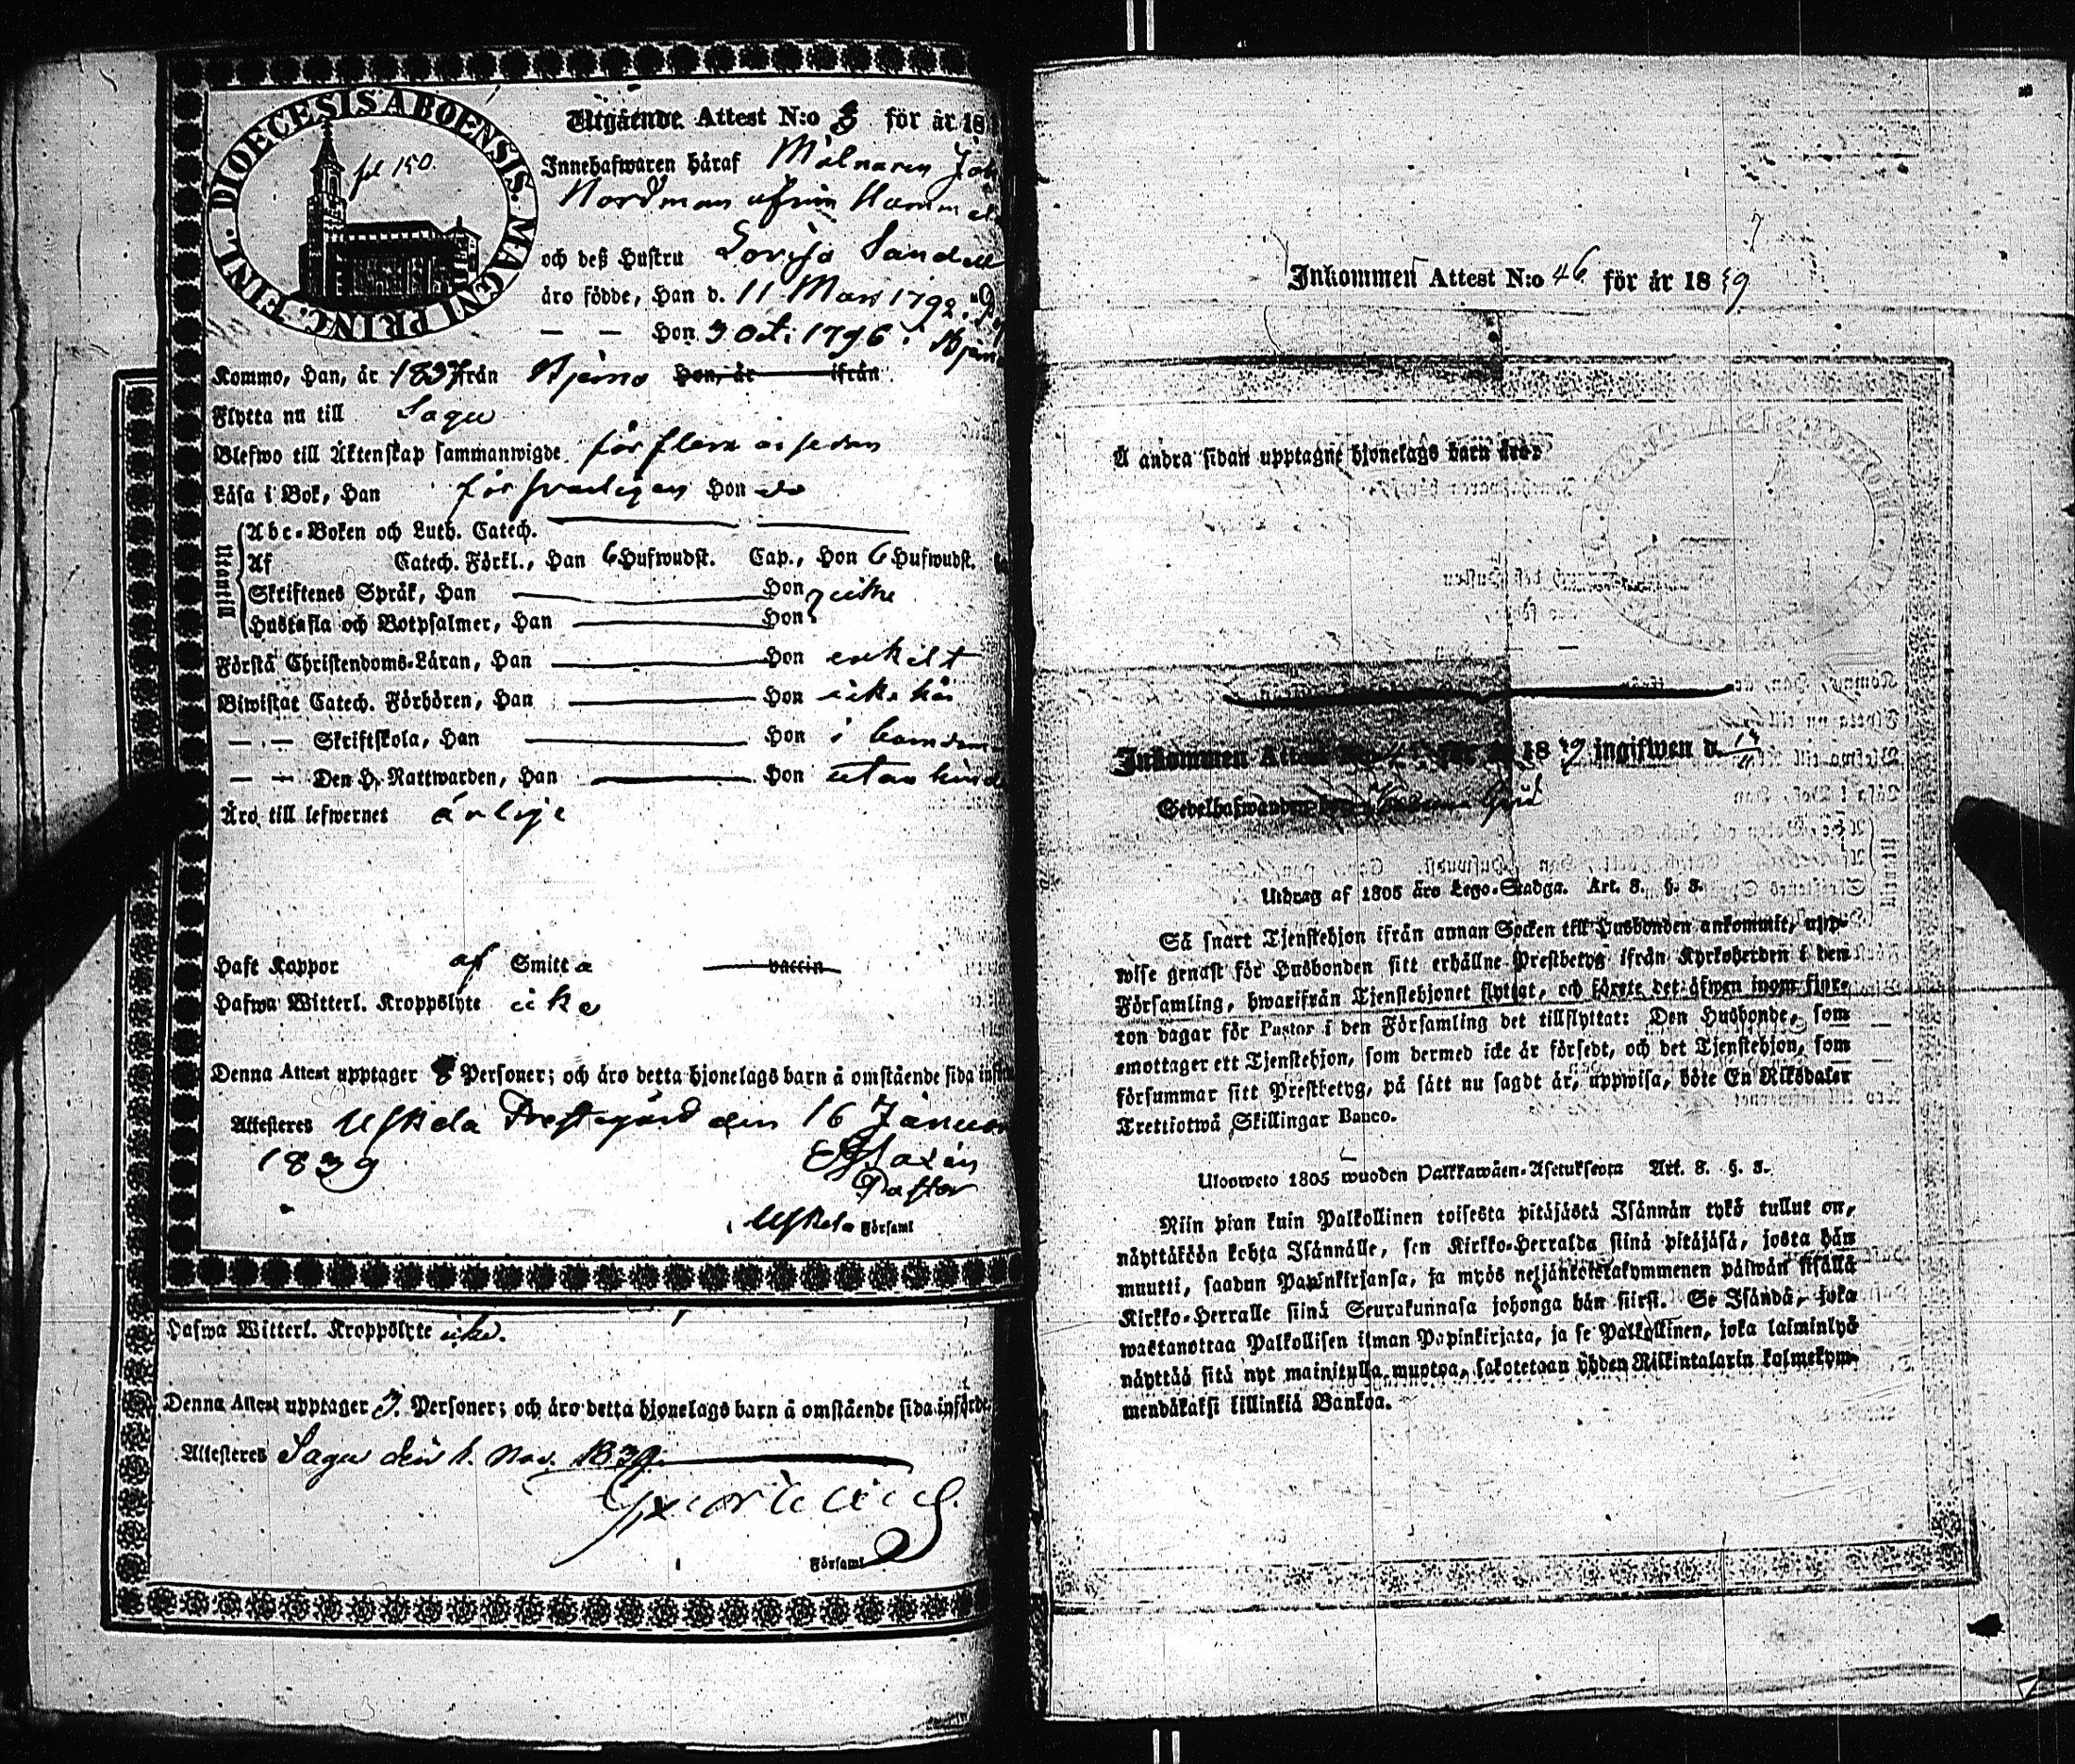 DIOECESIS ABOENSIS. MAGNI PRINC. FINL.
fol 150.
Utgående Attest N:o 3 för år 18
Innehafwaren håraf Mölnaren Joh
Nordman ifrån Hamm
och deß Hustru Lovisa Sandell
äro födde, Han d. 11 Mars 1792.
— — Hon 3 Oct: 1796 i Bjern
Kommo, Han, år 1837 från Bjerno Hon, år ifrån
Flytta nu till Sagu
Blefwo till Äktenskap sammanwigde för flera år sedan
Läsa i Bok, Han försvarligen Hon do
Utantill
Abc-Boken och Luth. Catech.
Af Catech. Förkl., Han 6 Hufwudst. Cap., Hon 6 Hufwudst.
Skriftenes Språk, Han Hon icke
Hustafla och Botpsalmer, Han Hon
Första Christendoms-Läran, Han Hon enkelt
Biwistat Catech. Förhören, Han Hon icke här
— — Skriftskola, Han Hon i barndom
— — Den H. Nattwarden, Han Hon utan hind
Äro till lefwernet ärlige
Haft Koppor af Smitta vaccin
Hafwa Witterl. Kroppslyte icke
Denna Attest upptager Personer; och äro detta hjonelags barn å omstående sida inf
Attesteres Uskela Prestegård den 16 Januar
1839
Pastor
i Uskela Församl
Hafwa Witterl. Kroppslyte icke.
Denna Attest upptager 3. Personer; och äro detta hjonelags barn å omstående sida införde
Attesteres Sagu den 1. Nov. 1839.
i Församl
Inkommen Attest N:o 46 för år 1839
Å andra sidan upptagne hjonelags barn äro:
Inkommen Attest för år 1839 ingifwen d.
Sedelhafwanden
Utdrag af 1805 års Lego-Stadga. Art. 8. §. 8.
Så snart Tjenstehjon ifrån annan Socken till Husbonden ankommit, upp-
wise genast för Husbonden sitt erhållne Prestbetyg ifrån Kyrkoherden i den
Församling, hwarifrån Tjenstehjonet flyttat, och förete det äfwen inom fjor-
ton dagar för Pastor i den Församling det tillflyttat: Den Husbonde, som
emottager ett Tjenstehjon, som dermed icke är försedt, och det Tjenstehjon, som
försummar sitt Prestbetyg, på sätt nu sagdt är, uppwisa, böte En Riksdaler
Trettiotwå Skillingar Banco.
Ulosweto 1805 wuoden Palkkawäen-Asetuksesta Art. 8. §. 8.
Niin pian kuin Palkollinen toisesta pitäjästä Isännän tykö tullut on,
näyttäköön kohta Isännälle, sen Kirkko-Herralda siinä pitäjäsä, josta hän
muutti, saadun Papinkirjansa, ja myös neljäntoistakymmenen päiwän sisällä
Kirkko-Herralle siinä Seurakunnasa johonga hän siirsi. Se Isändä, joka
wastanottaa Palkollisen ilman Papinkirjata, ja se Palkollinen, joka laiminlyö
näyttää sitä nyt mainitulla muotoa, sakotetaan yhden Riikintalarin kolmekym-
mendäkaksi killinkiä Bankoa.